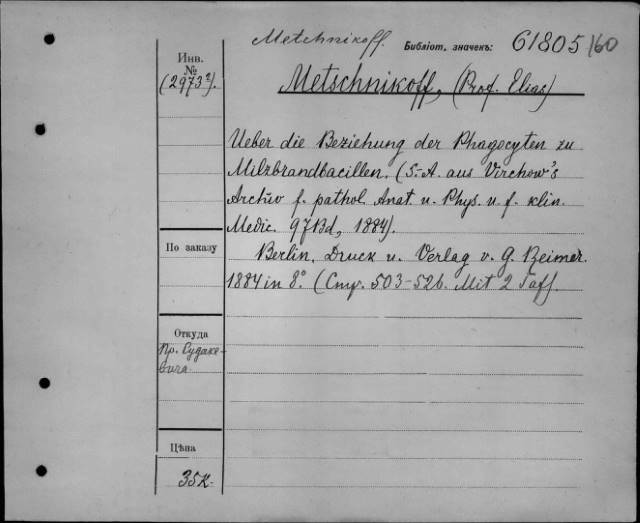 Metchnikoff. Библіот. значекъ: 61805/60
Инв.
№
(2973²).
Metschnikoff, (Prof. Elias)
Ueber die Beziehung der Phagocyten zu
Milzbrandbacillen. (S.-A. aus Virchow's
Archiv f. pathol. Anat. u. Phys. u. f. klin.
Medic. 97 Bd, 1884).
По заказу
Berlin, Druck u. Verlag v. G. Reimer.
1884 in 8° (Стр. 503-526. Mit 2 Taf)
Откуда
Пр. Судаке-
вича
Цѣна
35К.